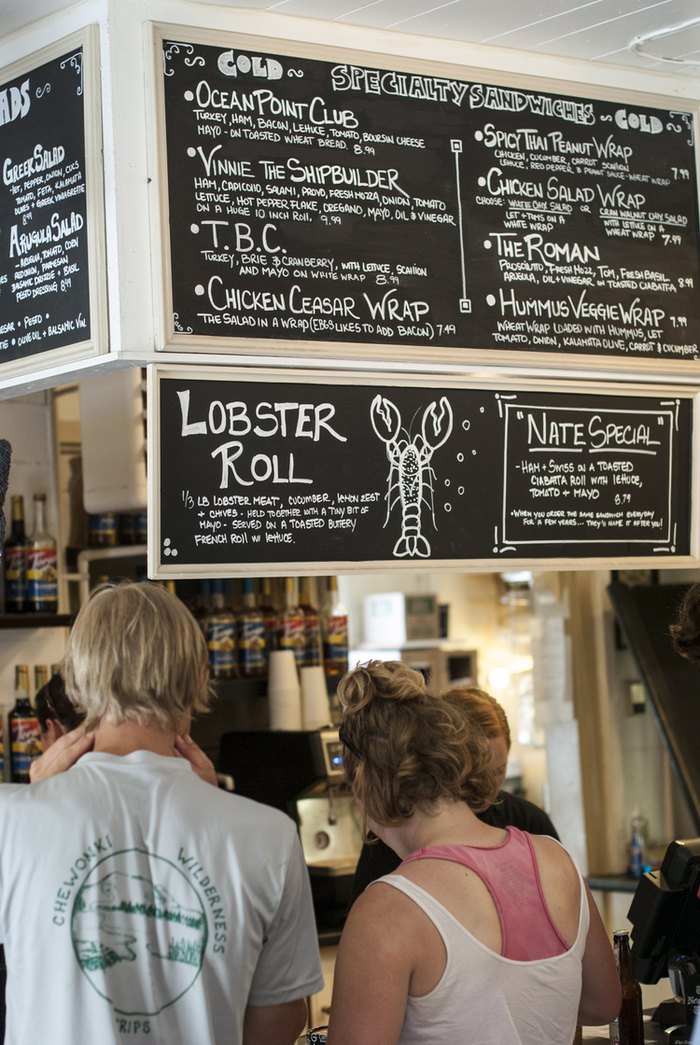 ADS
GREEK SALAD
LET, PEPPER, ONION, CUKES
TOMATO, FETA, KALAMATA
OLIVES + GREEK VINAIGRETTE
8.49
ARUGULA SALAD
ARUGULA, TOMATO, CORN
RED ONION, PARMESAN
BALSAMIC DRIZZLE + BASIL
PESTO DRESSING 8.49
PESTO •
OLIVE OIL + BALSAMIC VIN.
COLD SPECIALTY SANDWICHES COLD
• OCEAN POINT CLUB
TURKEY, HAM, BACON, LETTUCE, TOMATO, BOURSIN CHEESE
MAYO - ON TOASTED WHEAT BREAD. 8.99
• VINNIE THE SHIPBUILDER
HAM, CAPICOLLO, SALAMI, PROVO, FRESH MOZZA, ONION, TOMATO
LETTUCE, HOT PEPPER FLAKE, OREGANO, MAYO, OIL & VINEGAR
ON A HUGE 10 INCH ROLL. 9.99
• T.B.C.
TURKEY, BRIE & CRANBERRY, WITH LETTUCE, SCALLION
AND MAYO ON WHITE WRAP 8.99
• CHICKEN CEASAR WRAP
THE SALAD IN A WRAP (EBEB LIKES TO ADD BACON) 7.49
• SPICY THAI PEANUT WRAP
CHICKEN, CUCUMBER, CARROT, SCALLION
LETTUCE, RED PEPPER & PEANUT SAUCE - WHEAT WRAP 7.99
• CHICKEN SALAD WRAP
CHOOSE: WHITE CHX SALAD OR CRAN WALNUT CHX SALAD
LET + TOMS ON A WITH LETTUCE ON A
WHITE WRAP WHEAT WRAP 7.49
• THE ROMAN
PROSCIUTTO, FRESH MOZZ, TOM, FRESH BASIL
ARUGULA, OIL + VINEGAR ON TOASTED CIABATTA 8.99
• HUMMUS VEGGIE WRAP 7.99
WHEAT WRAP LOADED WITH HUMMUS, LET
TOMATO, ONION, KALAMATA OLIVE, CARROT & CUCUMBER
LOBSTER
ROLL
1/3 LB LOBSTER MEAT, CUCUMBER, LEMON ZEST
+ CHIVES - HELD TOGETHER WITH A TINY BIT OF
MAYO - SERVED ON A TOASTED BUTTERY
FRENCH ROLL W/ LETTUCE.
"NATE SPECIAL"
- HAM + SWISS ON A TOASTED
CIABATTA ROLL WITH LETTUCE,
TOMATO + MAYO 8.79
• WHEN YOU ORDER THE SAME SANDWICH EVERYDAY
FOR A FEW YEARS... THEY'LL NAME IT AFTER YOU!
CHEWONKI WILDERNESS
TRIPS